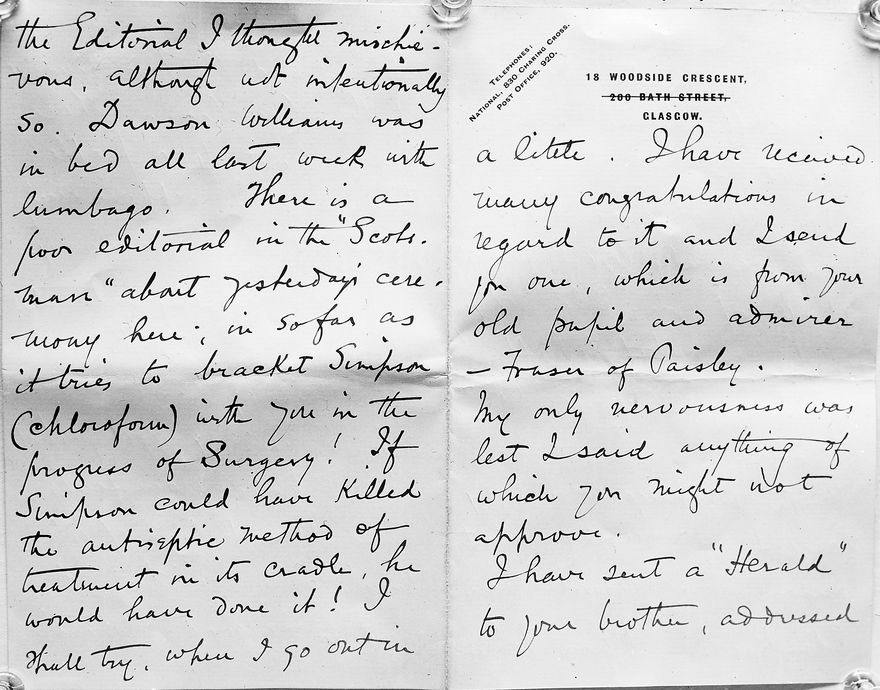 the Editorial I thought mischie-
vous, although not intentionally
so. Dawson Williams was
in bed all last week with
lumbago. There is a
poor editorial in the "Scots-
man" about yesterday's cere-
mony here; in so far as
it tries to bracket Simpson
(chloroform) with you in the
progress of Surgery! If
Simpson could have killed
the antiseptic method of
treatment in its cradle, he
would have done it! I
shall try, when I go out in
TELEPHONES:
NATIONAL, 830 CHARING CROSS.
POST OFFICE, 920.
18 WOODSIDE CRESCENT,
200 BATH STREET,
GLASGOW.
a little. I have received
many congratulations in
regard to it and I send
you one, which is from your
old pupil and admirer
- Fraser of Paisley.
My only nervousness was
lest I said anything of
which you might not
approve.
I have sent a "Herald"
to your brother, addressed